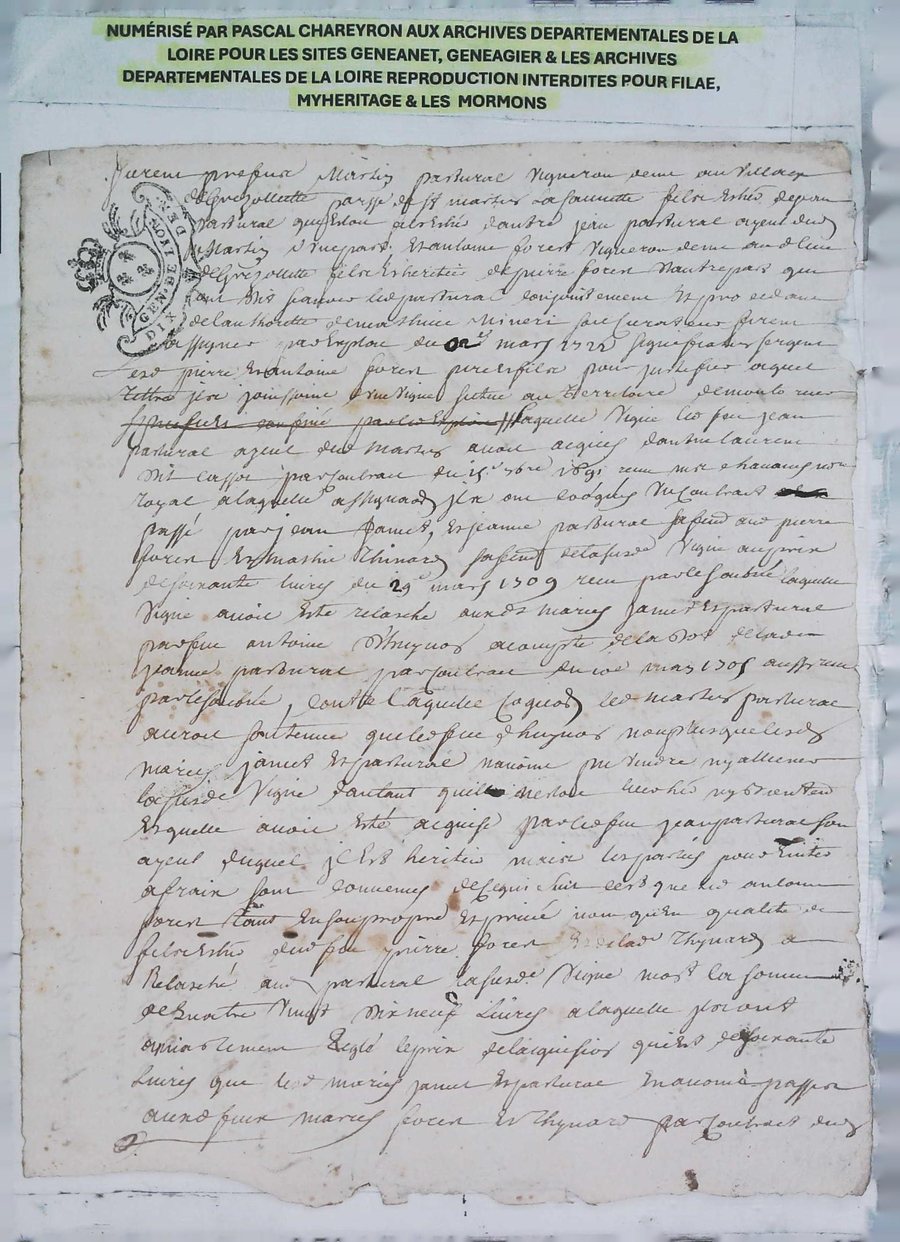 NUMÉRISÉ PAR PASCAL CHAREYRON AUX ARCHIVES DEPARTEMENTALES DE LA
LOIRE POUR LES SITES GENEANET, GENEAGIER & LES ARCHIVES
DEPARTEMENTALES DE LA LOIRE REPRODUCTION INTERDITES POUR FILAE,
MYHERITAGE & LES MORMONS
GEN. DE LION
DIX DEN
furent presens Martin pastural vigneron dem au village
de Grezollette parsse de st martin La sauvetté fils & her de jean
pastural quiestoit fils & her dautre jean pastural ayeul dud
Martin d'une part Et antoine forest vigneron dem au d lieu
de Grezollette fils & heritier de pierre forest dautre part qui
ont dit led pastural conjoitement Et procedant
de lauthoritte de mathieu son curateur furent
assigner par Exploit du mars 1722 signé sergent
led pierre Et antoine forest pere & fils pour justifier a quel
tittre jls joissoient d'une vigne situee au territoire de
par led Exploit laquelle vigne led feu jean
pastural ayeul dud martin avoit acquis dautre laurent
dit cassot par contrat du 15e 9bre 1691 receu me chavanis no
royal a laquelle assignaon jls ont un contract
passé par jean jamet, Et jeanne pastural sa fem aud pierre
forest Et mathie Thinard sa fem de la susde vigne au prix
de soixante livres du 29e mars 1709 receu par le soubné laquelle
vigne avoit este relaché auxds mariés jamet Et pastural
par feu antoine a compte de la dot de lad
jeanne pastural par contrat du may 1705 aussy receu
par le soubné, contre laquelle led martin pastural
auroit soustenue que led feu non plus que lesds
mariés jamet Et pastural navoint pu vendre ny alliener
la susde vigne dautant quil nestoit ny
Et quelle avoit esté acquise par led feu jean pastural son
ayeul duquel jl Est heritier mais les parties pour Eviter
a frais sont convenus de ce qui suit cest que led antoine
forest tant En son propre Et privé nom qu'en qualité de
fils & her dud feu pierre forest Et de lad Thynard a
Relaché aud pastural la susde vigne moyt la somme
de quatre vingt dix neuf livres a laquelle jls ont
amiablement Reglé le prix de lacquisition qui Est de soixante
Livres que lesd mariés jamet Et pastural En avoint passé
auxd feux mariés forest Et Thynard par contract dud